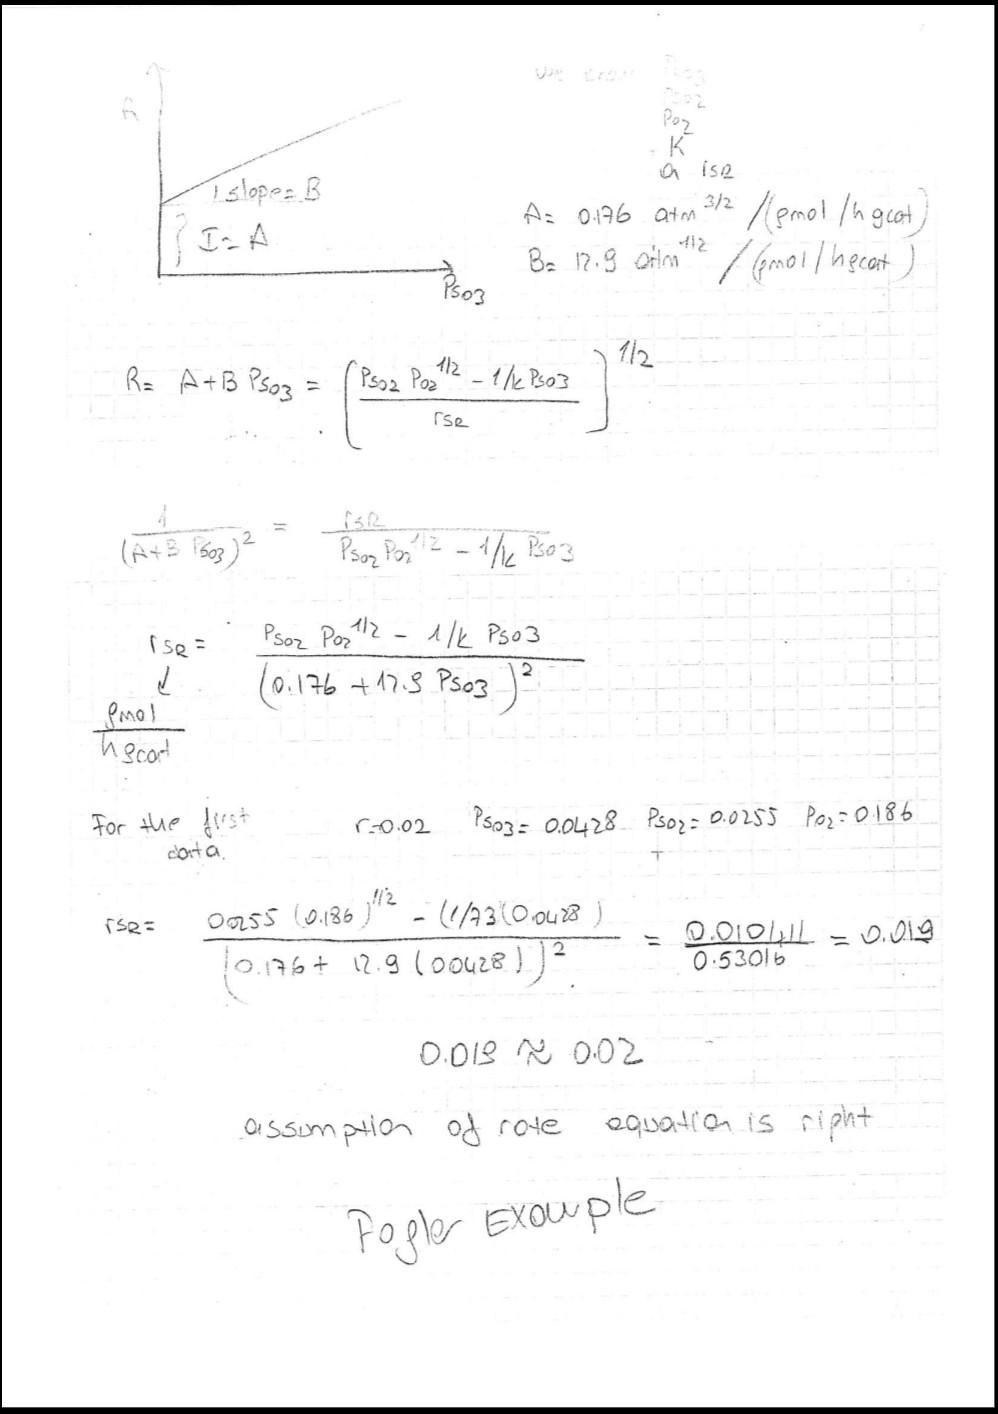 we know PSO3
R PSO2
PO2
K
a is R
slope = B
I = A
A = 0.176 atm^3/2 /(gmol/h gcat)
B = 17.9 atm^1/2 /(gmol/h gcat)
PSO3
R = A+B PSO3 = [ (PSO2 PO2^1/2 - 1/k PSO3) / rSR ]^1/2
1/(A+B PSO3)^2 = rSR / (PSO2 PO2^1/2 - 1/k PSO3)
rSR = (PSO2 PO2^1/2 - 1/k PSO3) / (0.176 + 17.9 PSO3)^2
gmol
h gcat
For the first r=0.02 PSO3 = 0.0428 PSO2 = 0.0255 PO2 = 0.186
data.
rSR = (0.0255 (0.186)^1/2 - (1/73(0.0428)) / (0.176 + 17.9 (0.0428))^2 = 0.010411 / 0.53016 = 0.019
0.019 ≈ 0.02
assumption of rate equation is right
Fogler Example